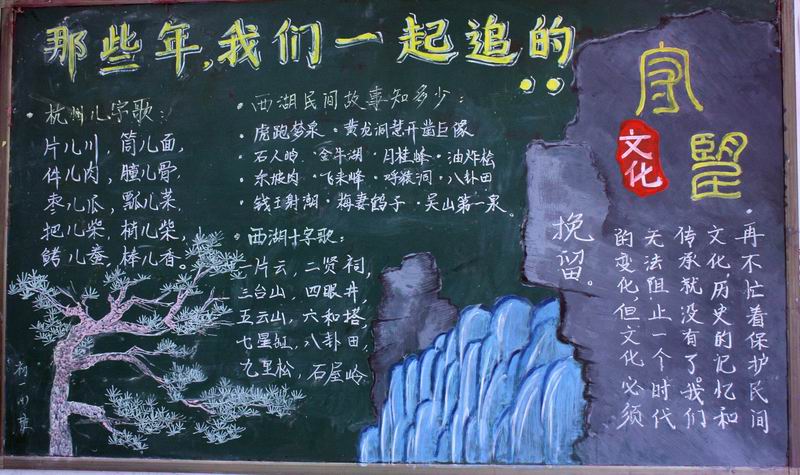 那些年,我们一起追的..
·杭州儿字歌:
片儿川,筒儿面,
件儿肉,膧儿骨,
枣儿瓜,瓢儿菜,
把儿柴,梢儿柴,
儿鲞,棒儿香。
·西湖民间故事知多少:
·虎跑梦泉·黄龙洞慧开凿巨像
·石人岭·金牛湖·月桂峰·油炸桧
·东坡肉·飞来峰·呼猿洞·八卦田
·钱王射潮·梅妻鹤子·吴山第一泉。
·西湖十字歌:
一片云,二贤祠,
三台山,四眼井,
五云山,六和塔,
七星缸,八卦田,
九里松,石屋岭
守望
文化
·再不忙着保护民间
文化,历史的记忆和
传承就没有了.我们
无法阻止一个时代
的变化,但文化必须
挽留。